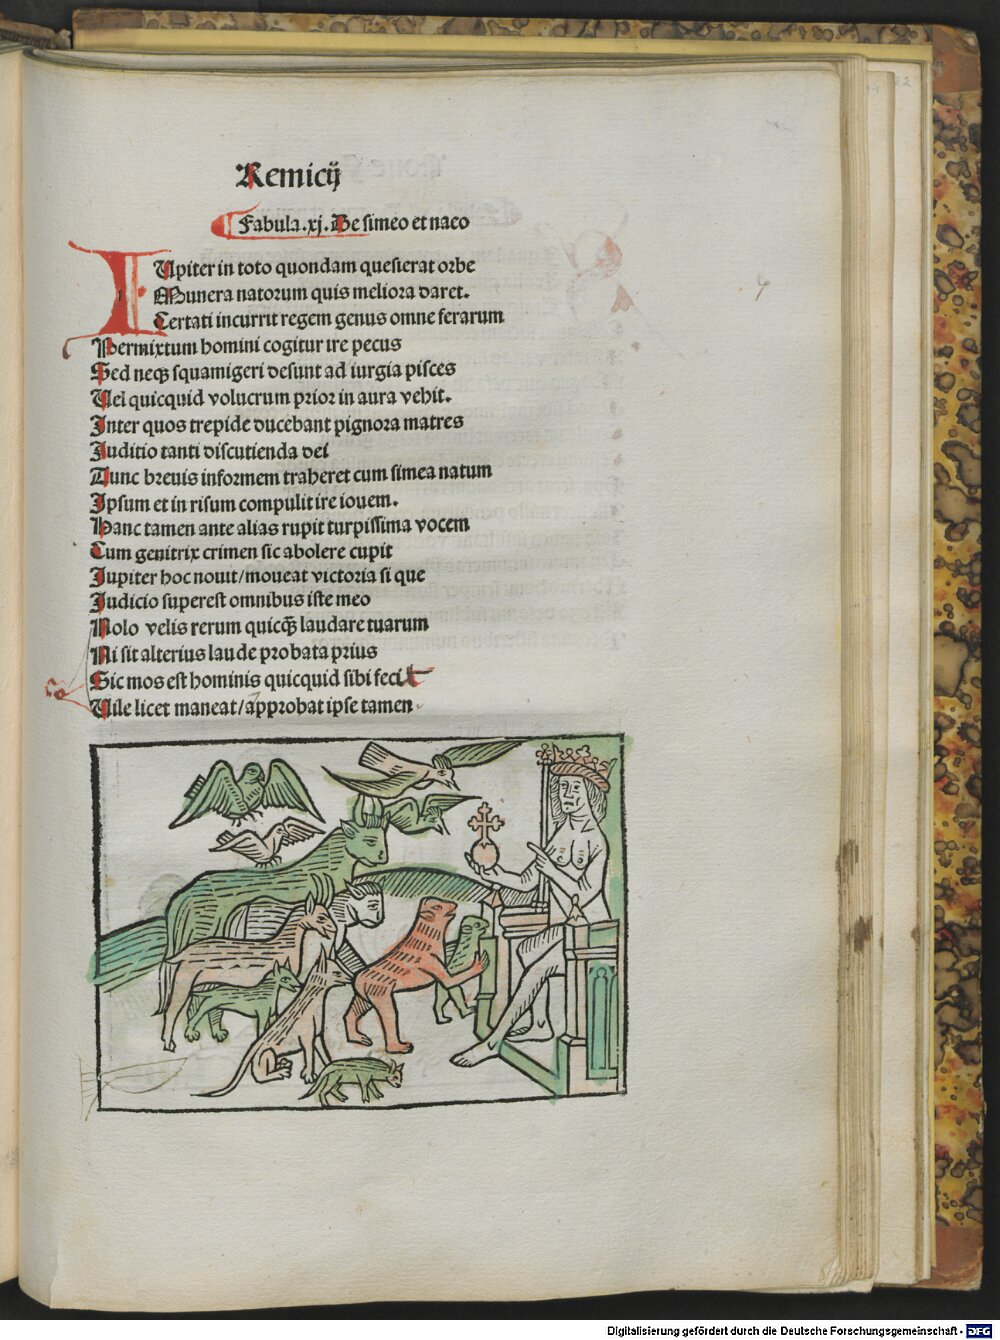 Remicij
Fabula.xj. De simeo et naeo
IUpiter in toto quondam quesierat orbe
Munera natorum quis meliora daret.
Certati incurrit regem genus omne ferarum
Permixtum homini cogitur ire pecus
Sed neqȝ squamigeri desunt ad iurgia pisces
Uel quicquid volucrum prior in aura vehit.
Inter quos trepide ducebant pignora matres
Juditio tanti discutienda dei
Tunc breuis informem traheret cum simea natum
Ipsum et in risum compulit ire iouem.
Hanc tamen ante alias rupit turpissima vocem
Cum genitrix crimen sic abolere cupit
Jupiter hoc nouit/moueat victoria si que
Judicio superest omnibus iste meo
Nolo velis rerum quicqȝ laudare tuarum
Ni sit alterius laude probata prius
Sic mos est hominis quicquid sibi fecit
Uile licet maneat/approbat ipse tamen
Digitalisierung gefördert durch die Deutsche Forschungsgemeinschaft - DFG